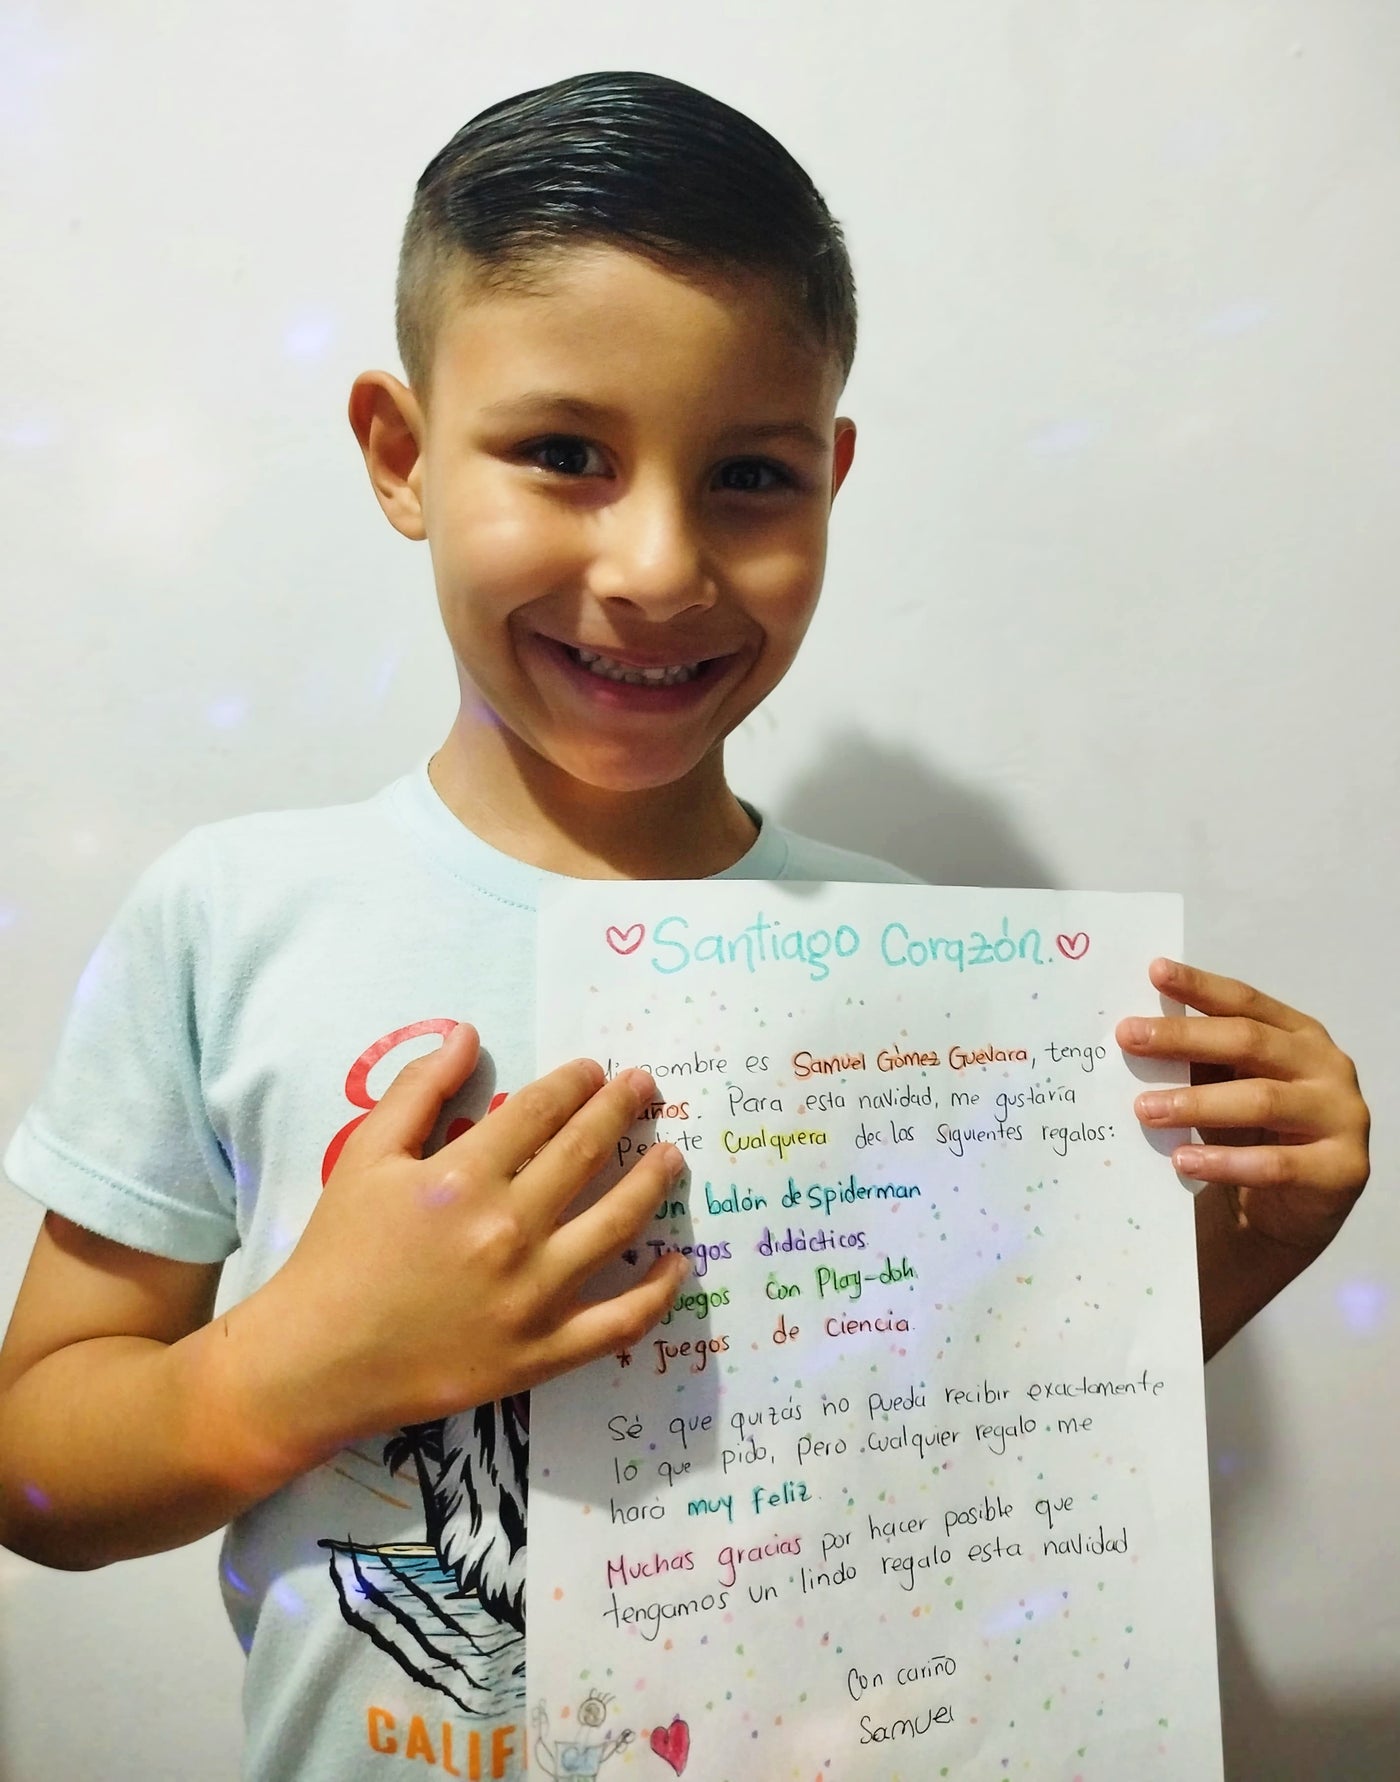 Santiago Corazón.
nombre es Samuel Gómez Guevara, tengo
años. Para esta navidad, me gustaría
Cualquiera dec los siguientes regalos:
balón de Spiderman
* Juegos didácticos.
Juegos con Play-doh
* Juegos de ciencia.
Sé que quizás no pueda recibir exactamente
lo que pido, pero cualquier regalo me
hará muy feliz.
Muchas gracias por hacer posible que
tengamos un lindo regalo esta navidad
Con cariño
Samuel
CALIF